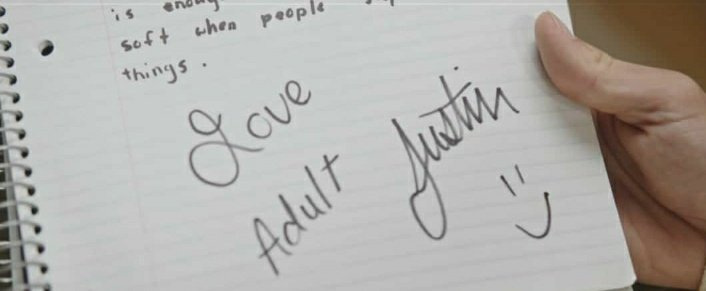 is
soft when people
things.
Love
Adult Justin